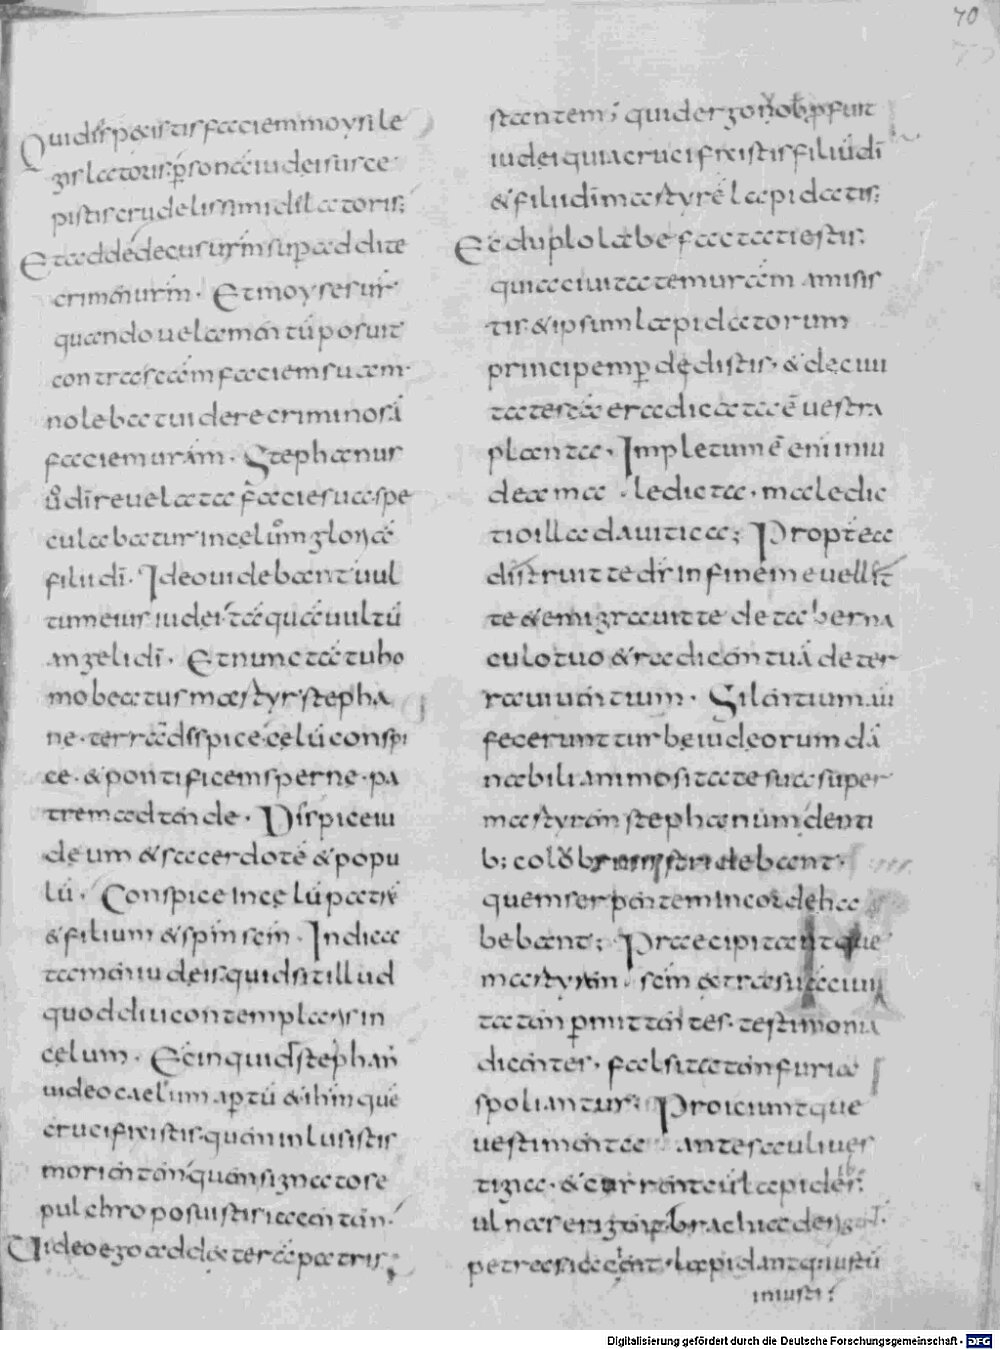 70
Quid dispexistis faciem moysi le
gis latoris psonae iudei susce
pistis crudelissimi dilatoris;
Et ad dedecus urm sup addite
crimen urm. Et moyses uir
quando uelamentū posuit
contra sacam faciem suam.
nolebat uidere criminosā
faciem uram. Stephanus
ū dni reuelata facie sua spe
culabatur in celum gloriae
filii dī. Ideo uidebant uul
tum eius iudei tāquā uultū
angeli dī. Et nunc tā tu ho
mo beatus martyr stepha
ne terrā dispice celū conspi
ce. & pontificem sperne. pa
trem adtende. Dispice iu
deum & sacerdotē & popu
lū. Conspice in celū patrē
& filium & spm scm. Indica
tamen iudeis quid sit illud
quod diu contemplaris in
celum. Ecinquid stephan
uideo caelum aptū & ihm quē
crucifixistis. quem inlusistis
morientem quem signato se
pulchro posuistis iacentem.
Uideo ego ad dexterā patris;
stantem; quid ergo nob pfuit
iudei quia crucifixistis filiū dī
& filii dī martyrē lapidatis;
Ec duplo labe factati estis.
quia ciuitatem uram amisis
tis. & ipsum lapidatorum
principem pdedistis. & de ciui
tate sca eradicata ē uestra
planta. Impletum ē enim iu
dea me ledicta. maledic
tio illa dauitica; Propterea
distruit te ds in finem euellit
te & emigrauit te de taberna
culo tuo & radicem tuā de ter
ra uiuentium. Silentium ū
fecerunt turbe iudeorum dā
nabili animositate sua super
martyrem stephanum denti
b; colob stridebant.
quem serpentem in corde ha
bebant; Praecipitantque
martyrem scm extra suā ciui
tatem pmittentes. testimonia
dicentes. falsitatem furia
spoliantur; Proiciuntque
uestimenta ante sauli ues
tigia. & currente ul lapides.
ulnas erigens brachia densat.
petra sidecent. lapidant q; iustū
iniusti;
Digitalisierung gefördert durch die Deutsche Forschungsgemeinschaft - DFG